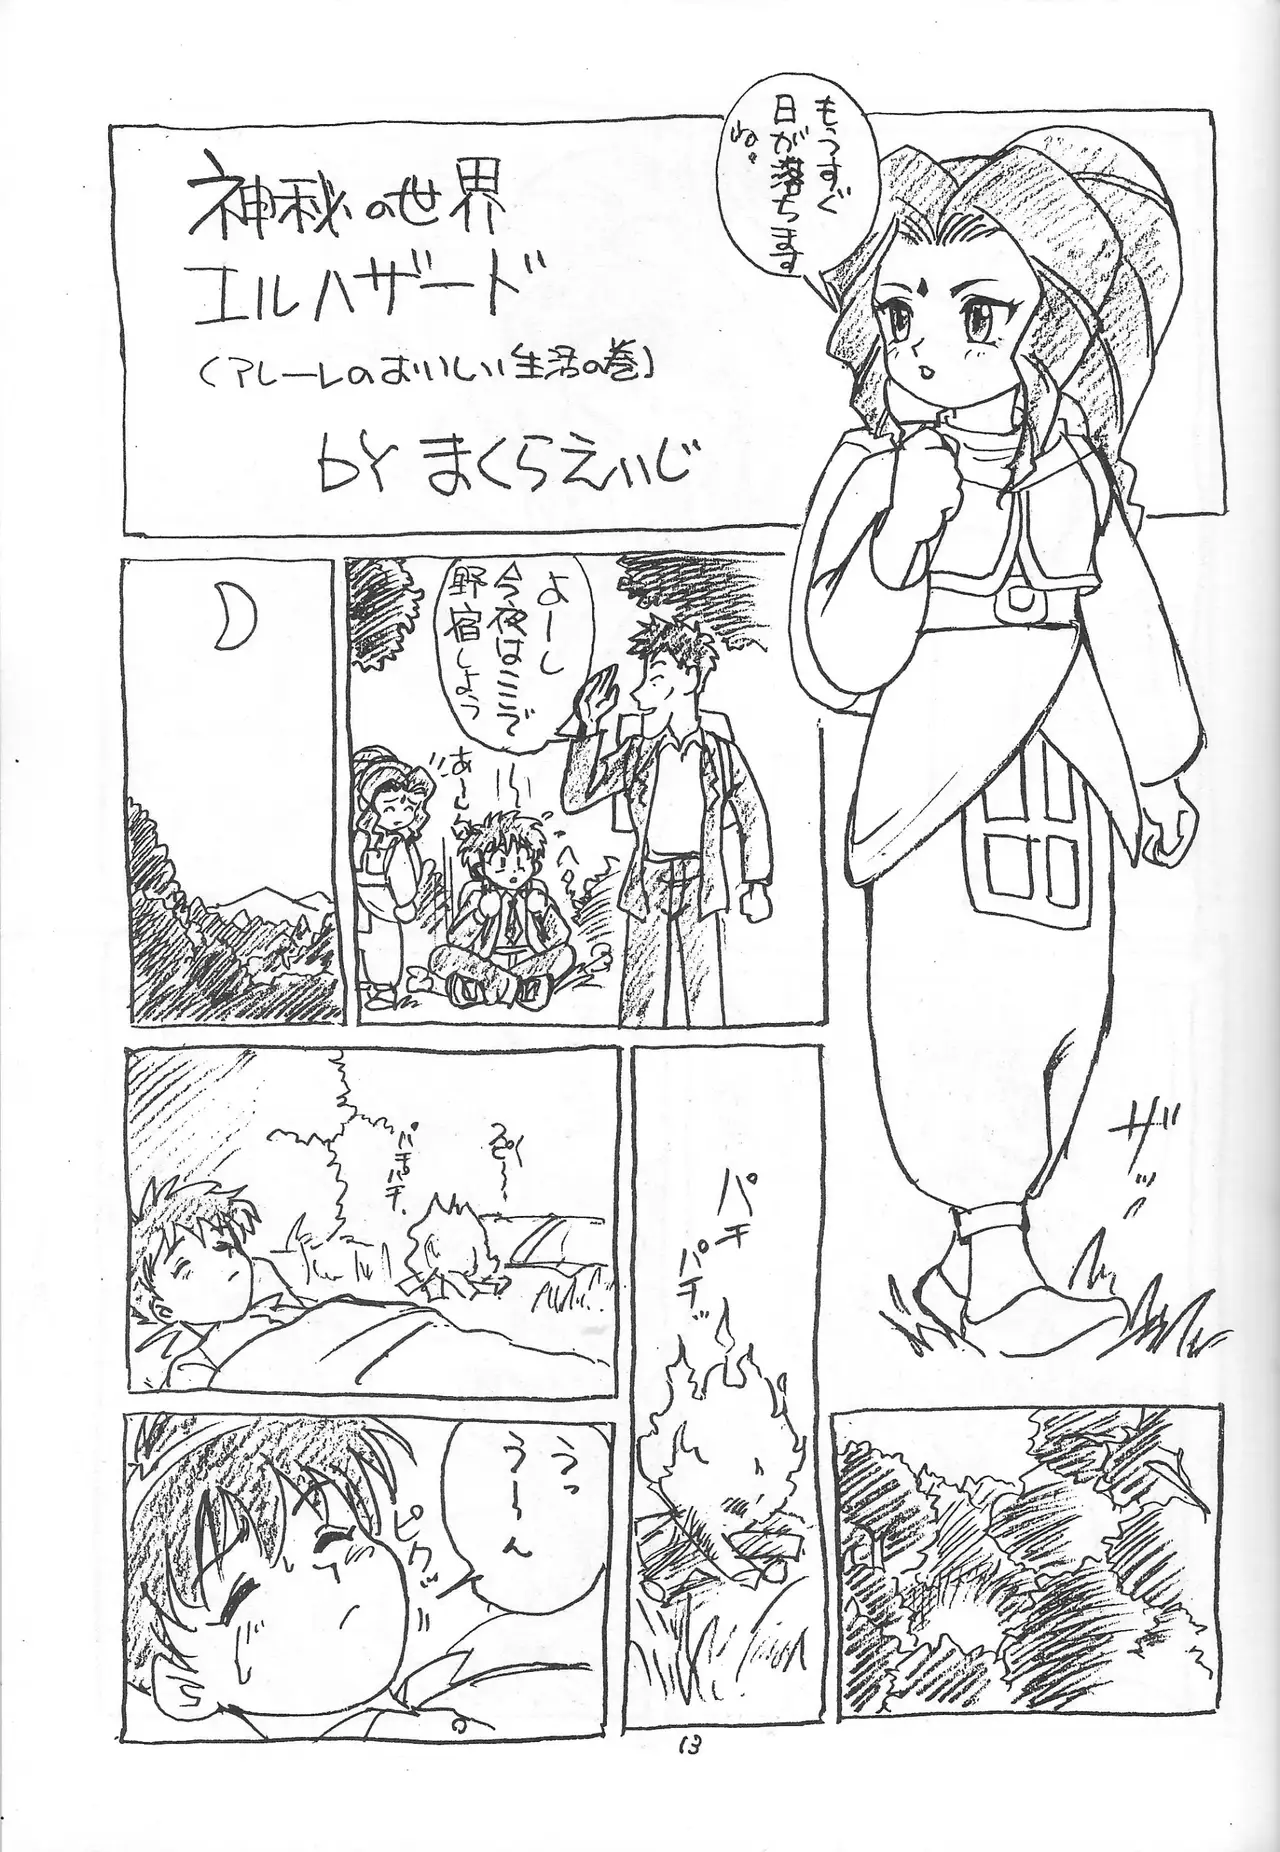 神秘の世界
エルハザード
(アレーレのおいしい生活の巻)
by まくらえいじ
もうすぐ
日が落ちます
ね。
ザッ
よーし
今夜はここで
野宿しよう
あーん
ヘロ
パチ
パチ
パチパチ
スピ〜
うっ
う〜ん
ピクッ
13